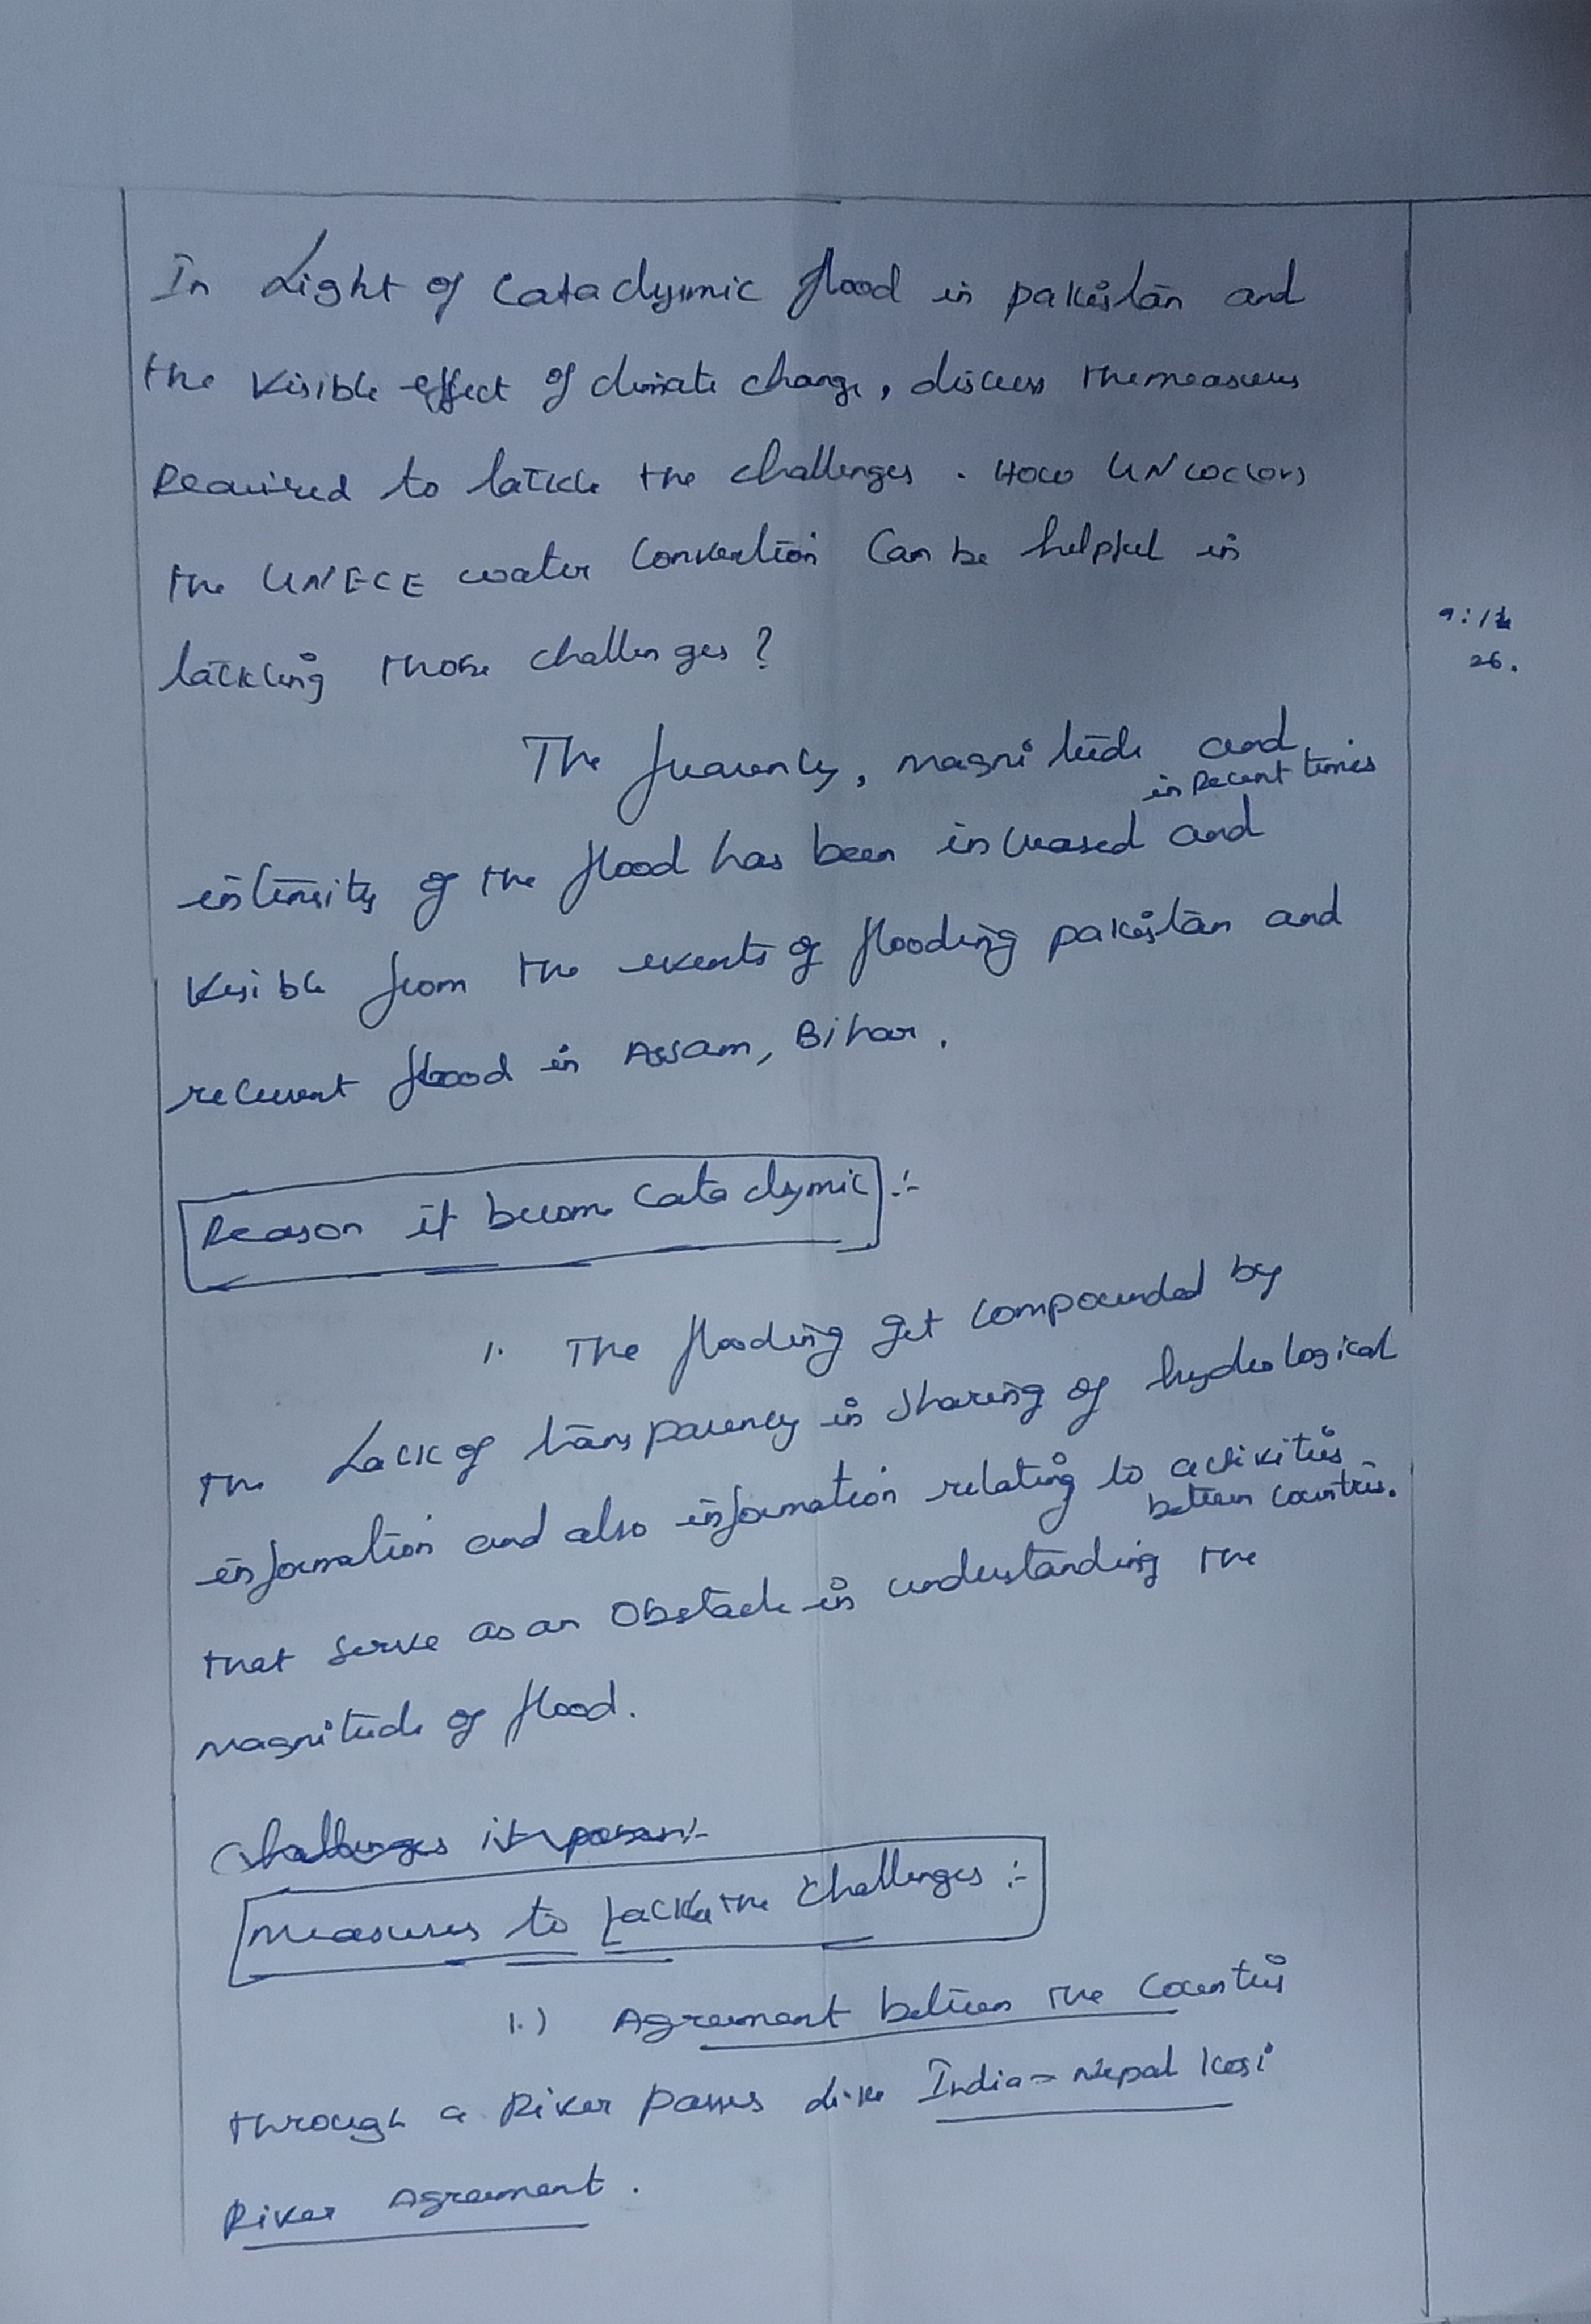 In Light of Cataclysmic flood in pakistan and
the visible effect of climate change, discuss the measures
Required to tackle the challenges. How UNWC (or)
the UNECE water Convention Can be helpful in
tackling those challenges?
9:12
26.
The frequency, magnitude and
in Recent times
intensity of the flood has been increased and
visible from the events of flooding pakistan and
recurrent flood in Assam, Bihar.
Reason it become Cataclymic :-
1. The flooding get compounded by
the Lack of transparency in sharing of hydrological
information and also information relating to activities
between countries.
that serve as an Obstacle in understanding the
magnitude of flood.
Challenges it poses:-
Measures to tackle the Challenges :-
1.) Agreement between the Countries
through a River passes like India - Nepal Kosi
River Agreement.